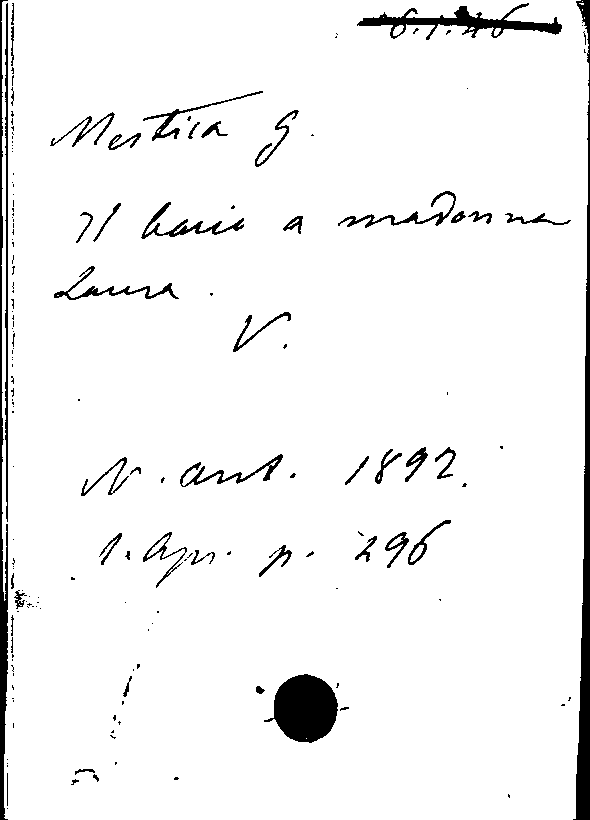 6.1.46
Mestica G.
Il bacio a madonna
Laura.
V.
N. ant. 1892.
1. Apr. p. 296